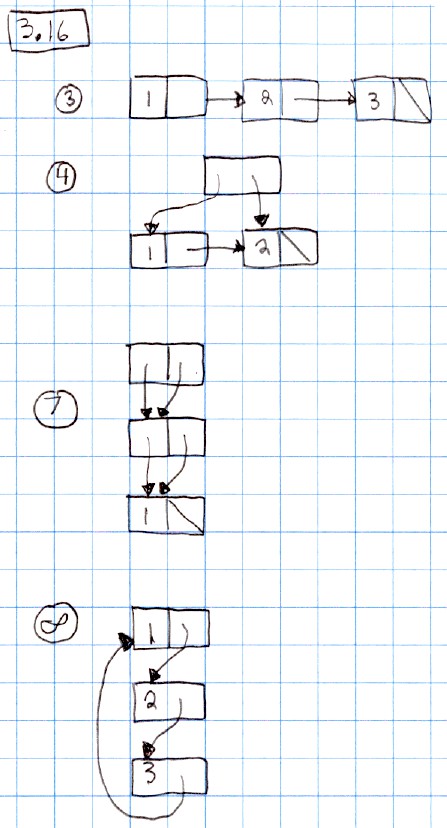 3.16
③ 1 2 3
④
1 2
⑦
1
∞
1
2
3